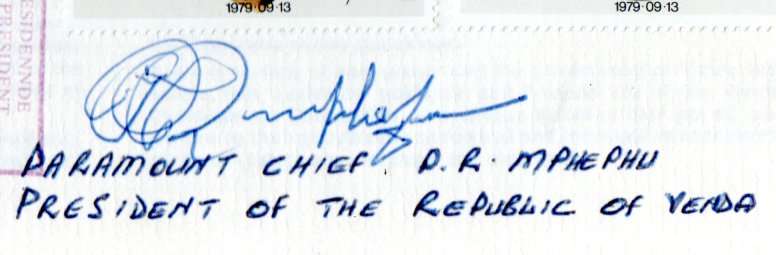 1979·09·13 1979·09·13
ESIDENNDE
PRESIDENT
PARAMOUNT CHIEF P.R. MPHEPHU
PRESIDENT OF THE REPUBLIC OF VENDA